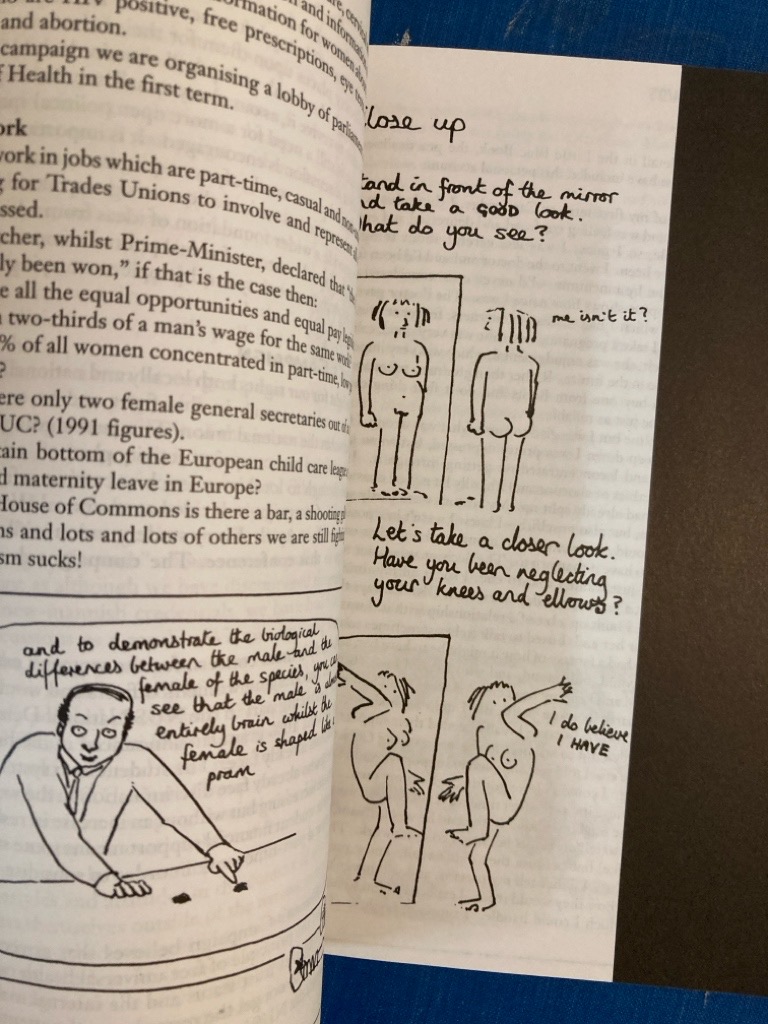 positive, free prescriptions, eye
and abortion.
campaign we are organising a lobby of
Health in the first term.
work in jobs which are part-time, casual and
for Trades Unions to involve and represent
whilst Prime-Minister, declared that
been won,” if that is the case then:
all the equal opportunities and equal pay
two-thirds of a man’s wage for the same
% of all women concentrated in part-time,
?
only two female general secretaries out of
UC? (1991 figures).
bottom of the European child care
maternity leave in Europe?
House of Commons is there a bar, a shooting
and lots and lots of others we are still
sucks!
and to demonstrate the biological
differences between the male and the
female of the species, you
see that the male is
entirely brain whilst the
female is shaped
pram
up
in front of the mirror
take a GOOD look.
do you see?
me isn't it?
Let's take a closer look.
Have you been neglecting
your knees and elbows?
I do believe
I HAVE